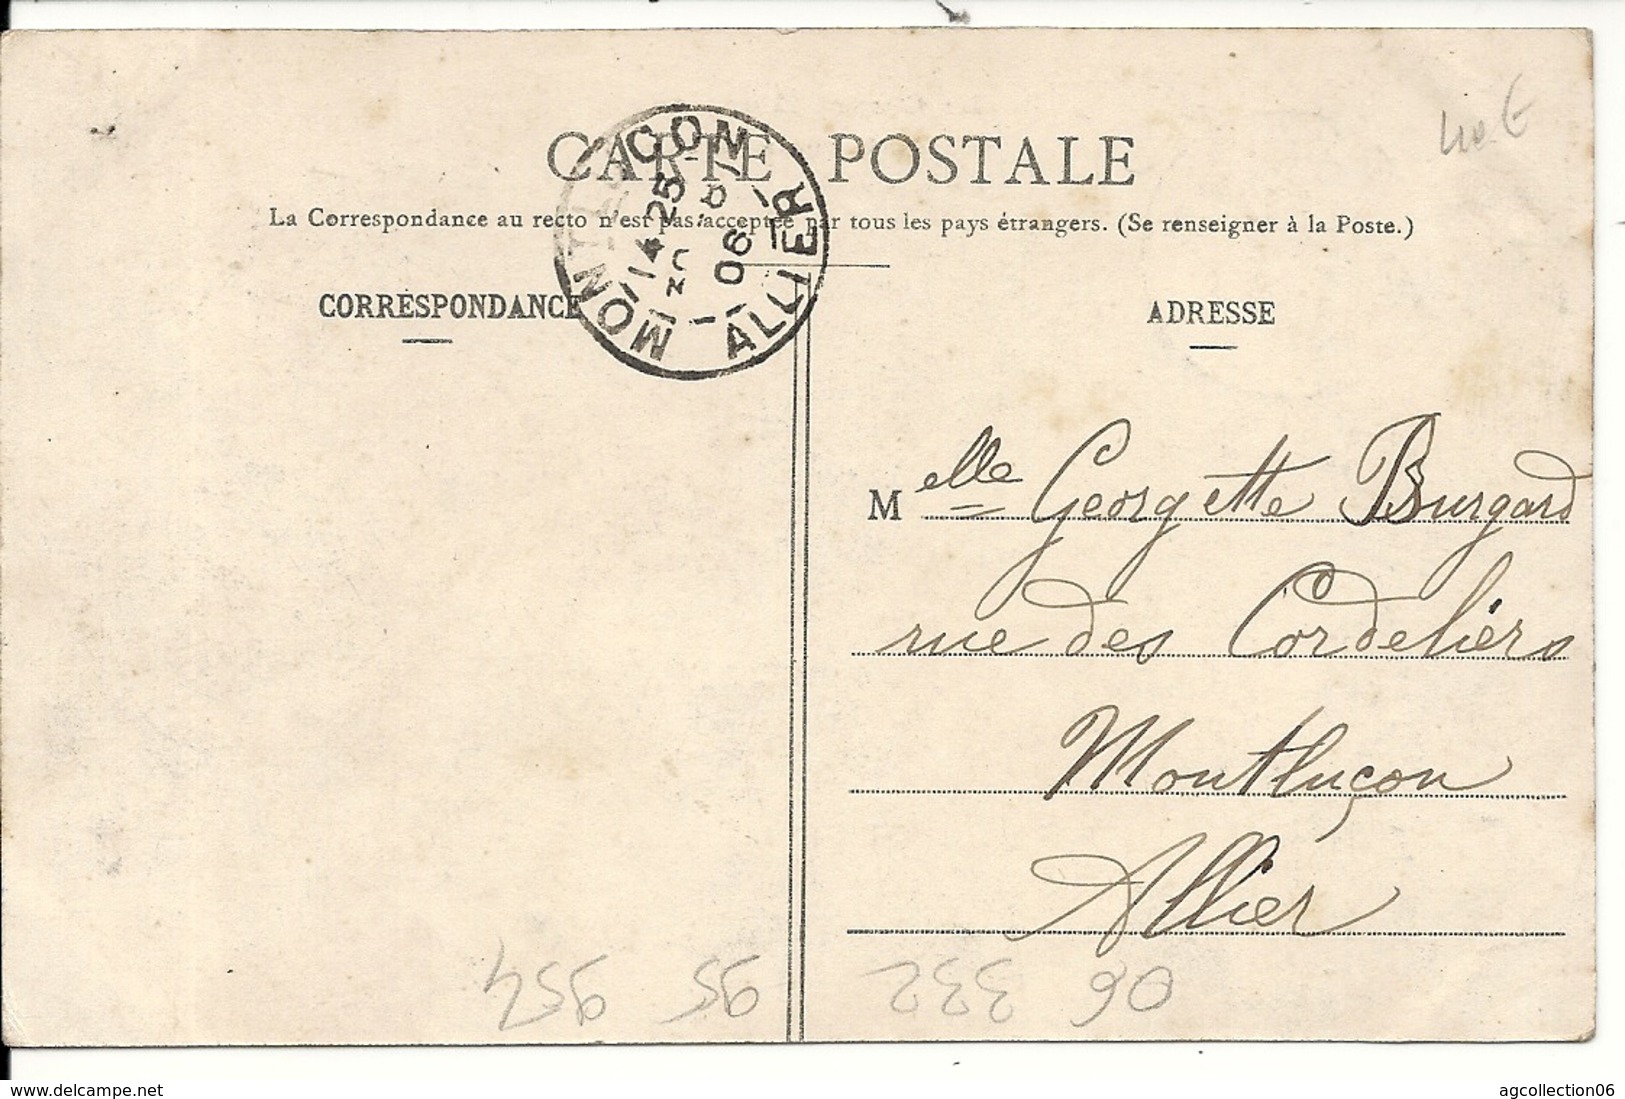 40 €
CARTE POSTALE
La Correspondance au recto n'est pas acceptée par tous les pays étrangers. (Se renseigner à la Poste.)
MONTLUÇON
14 25
06
ALLIER
CORRESPONDANCE
ADRESSE
Melle Georgette Burgard
rue des Cordeliers
Montluçon
Allier
954 95 332 06
www.delcampe.net
agcollection06